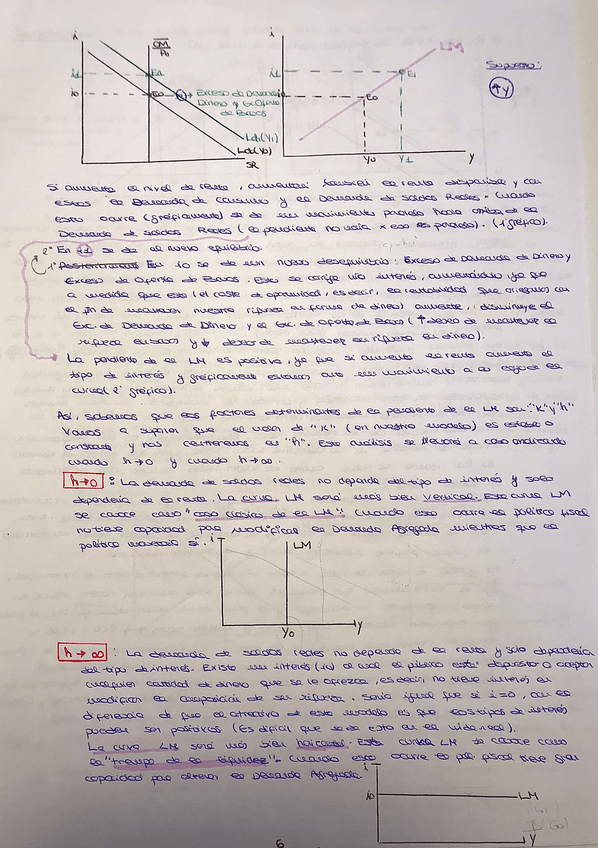 i
OM
P₀
i₁
E₁
i₀
E₀
→ Exceso de Demanda
Dinero y Ex. Oferta
de Bonos
Ld₁(Y₁)
Ld₀(Y₀)
SR
i
LM
E₁
i₁
E₀
i₀
Y₀
Y₁
Y
Supuesto:
↑Y
Si aumenta el nivel de renta, aumentará también la renta disponible y con
estas la Demanda de consumo y la Demanda de saldos Reales. Cuando
esto ocurre (gráficamente) se da un movimiento paralelo hacia arriba de la
Demanda de saldos Reales (la pendiente no varía x eso es paralelo). (1 gráfico).
2º En i1 se da el nuevo equilibrio.
1º Posteriormente En i0 se da un nuevo desequilibrio: Exceso de Demanda de Dinero y
Exceso de Oferta de Bonos. Esto se corrige vía interés, aumentándolo, ya que
a medida que esto (el coste de oportunidad, es decir, la rentabilidad que
el fin de mantener nuestra riqueza en forma de dinero) aumente, disminuye el
Exc. de Demanda de Dinero y el Exc. de Oferta de Bonos (↑ deseo de mantener la
riqueza en bonos y ↓ deseo de mantener su riqueza en dinero).
La pendiente de la LM es positiva, ya que si aumenta la renta aumenta el
tipo de interés y gráficamente estamos ante un movimiento a lo largo de la
curva (2º gráfico).
Así, sabemos que los factores determinantes de la pendiente de la LM son: "K" y "h"
Vamos a suponer que el valor de "K" (en nuestro modelo) es estable o
constante y nos centraremos en "h". Este análisis se llevará a cabo analizando
cuando h→0 y cuando h→∞.
h→0 : La demanda de saldos reales no depende del tipo de interés y solo
dependería de la renta. La curva LM será más bien vertical. Esta curva LM
se conoce como "caso clásico de la LM". Cuando esto ocurre la política fiscal
no tiene capacidad para modificar la Demanda Agregada mientras que la
política monetaria sí.
i
LM
Y₀
Y
h→∞ : La demanda de saldos reales no depende de la renta y solo dependería
del tipo de interés. Existe un interés (i₀) al cual el público está dispuesto a aceptar
cualquier cantidad de dinero que se le ofrezca, es decir, no tiene interés en
modificar la composición de su riqueza. Sería igual que si i=0, con la
diferencia de que el atractivo de este modelo es que los tipos de interés
pueden ser positivos (Es difícil que se de esto en la vida real).
La curva LM será más bien horizontal. Esta curva LM se conoce como
la "trampa de la liquidez". Cuando esto ocurre la pol. fiscal tiene gran
capacidad para alterar la Demanda Agregada.
i
i₀
LM
Y
6